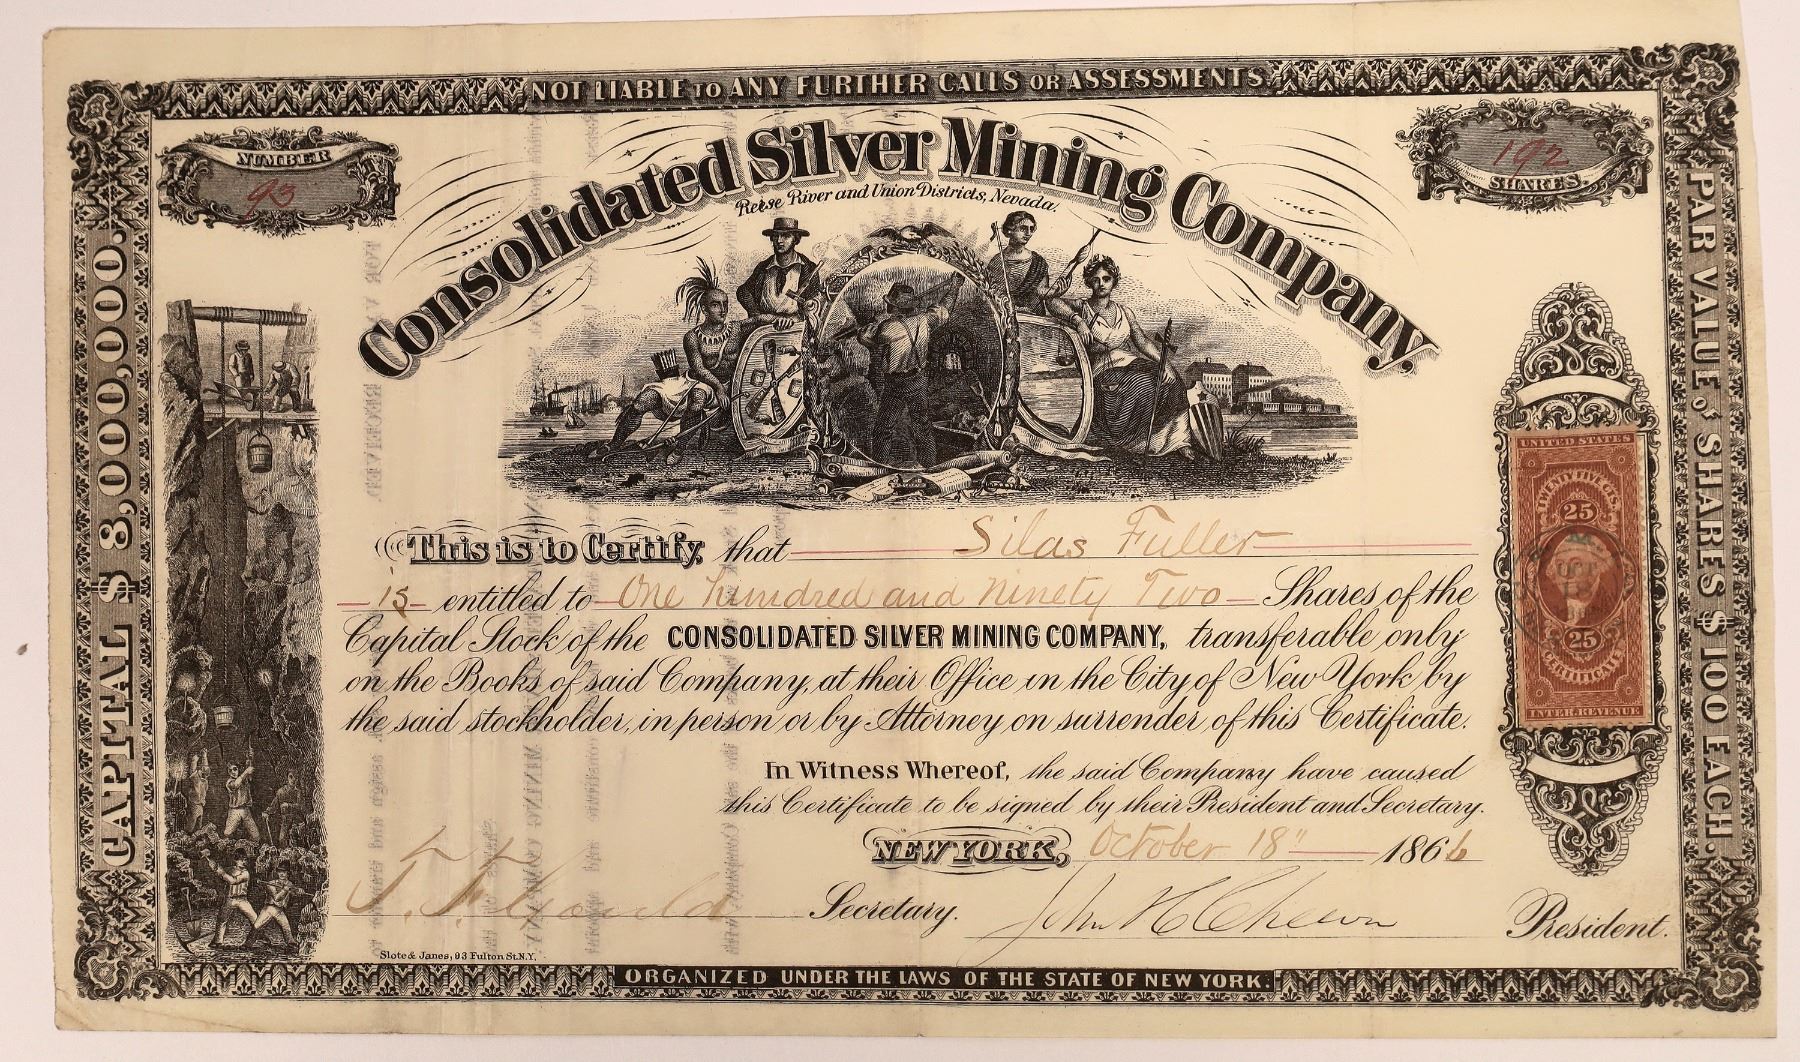 NOT LIABLE TO ANY FURTHER CALLS OR ASSESSMENTS
NUMBER
93
192
SHARES
Consolidated Silver Mining Company.
Reese River and Union Districts, Nevada.
CAPITAL $ 8,000,000.
PAR VALUE of SHARES $ 100 EACH.
UNITED STATES
TWENTY FIVE CTS.
25
OCT
18
25
CERTIFICATE
INTER. REVENUE
This is to Certify, that Silas Fuller
is entitled to One hundred and Ninety Two Shares of the
Capital Stock of the CONSOLIDATED SILVER MINING COMPANY, transferable only
on the Books of said Company, at their Office in the City of New York by
the said stockholder, in person or by Attorney on surrender of this Certificate.
In Witness Whereof, the said Company have caused
this Certificate to be signed by their President and Secretary.
NEW YORK, October 18" 1866
Secretary. John H President.
Slote & Janes, 93 Fulton St. N.Y.
ORGANIZED UNDER THE LAWS OF THE STATE OF NEW YORK.